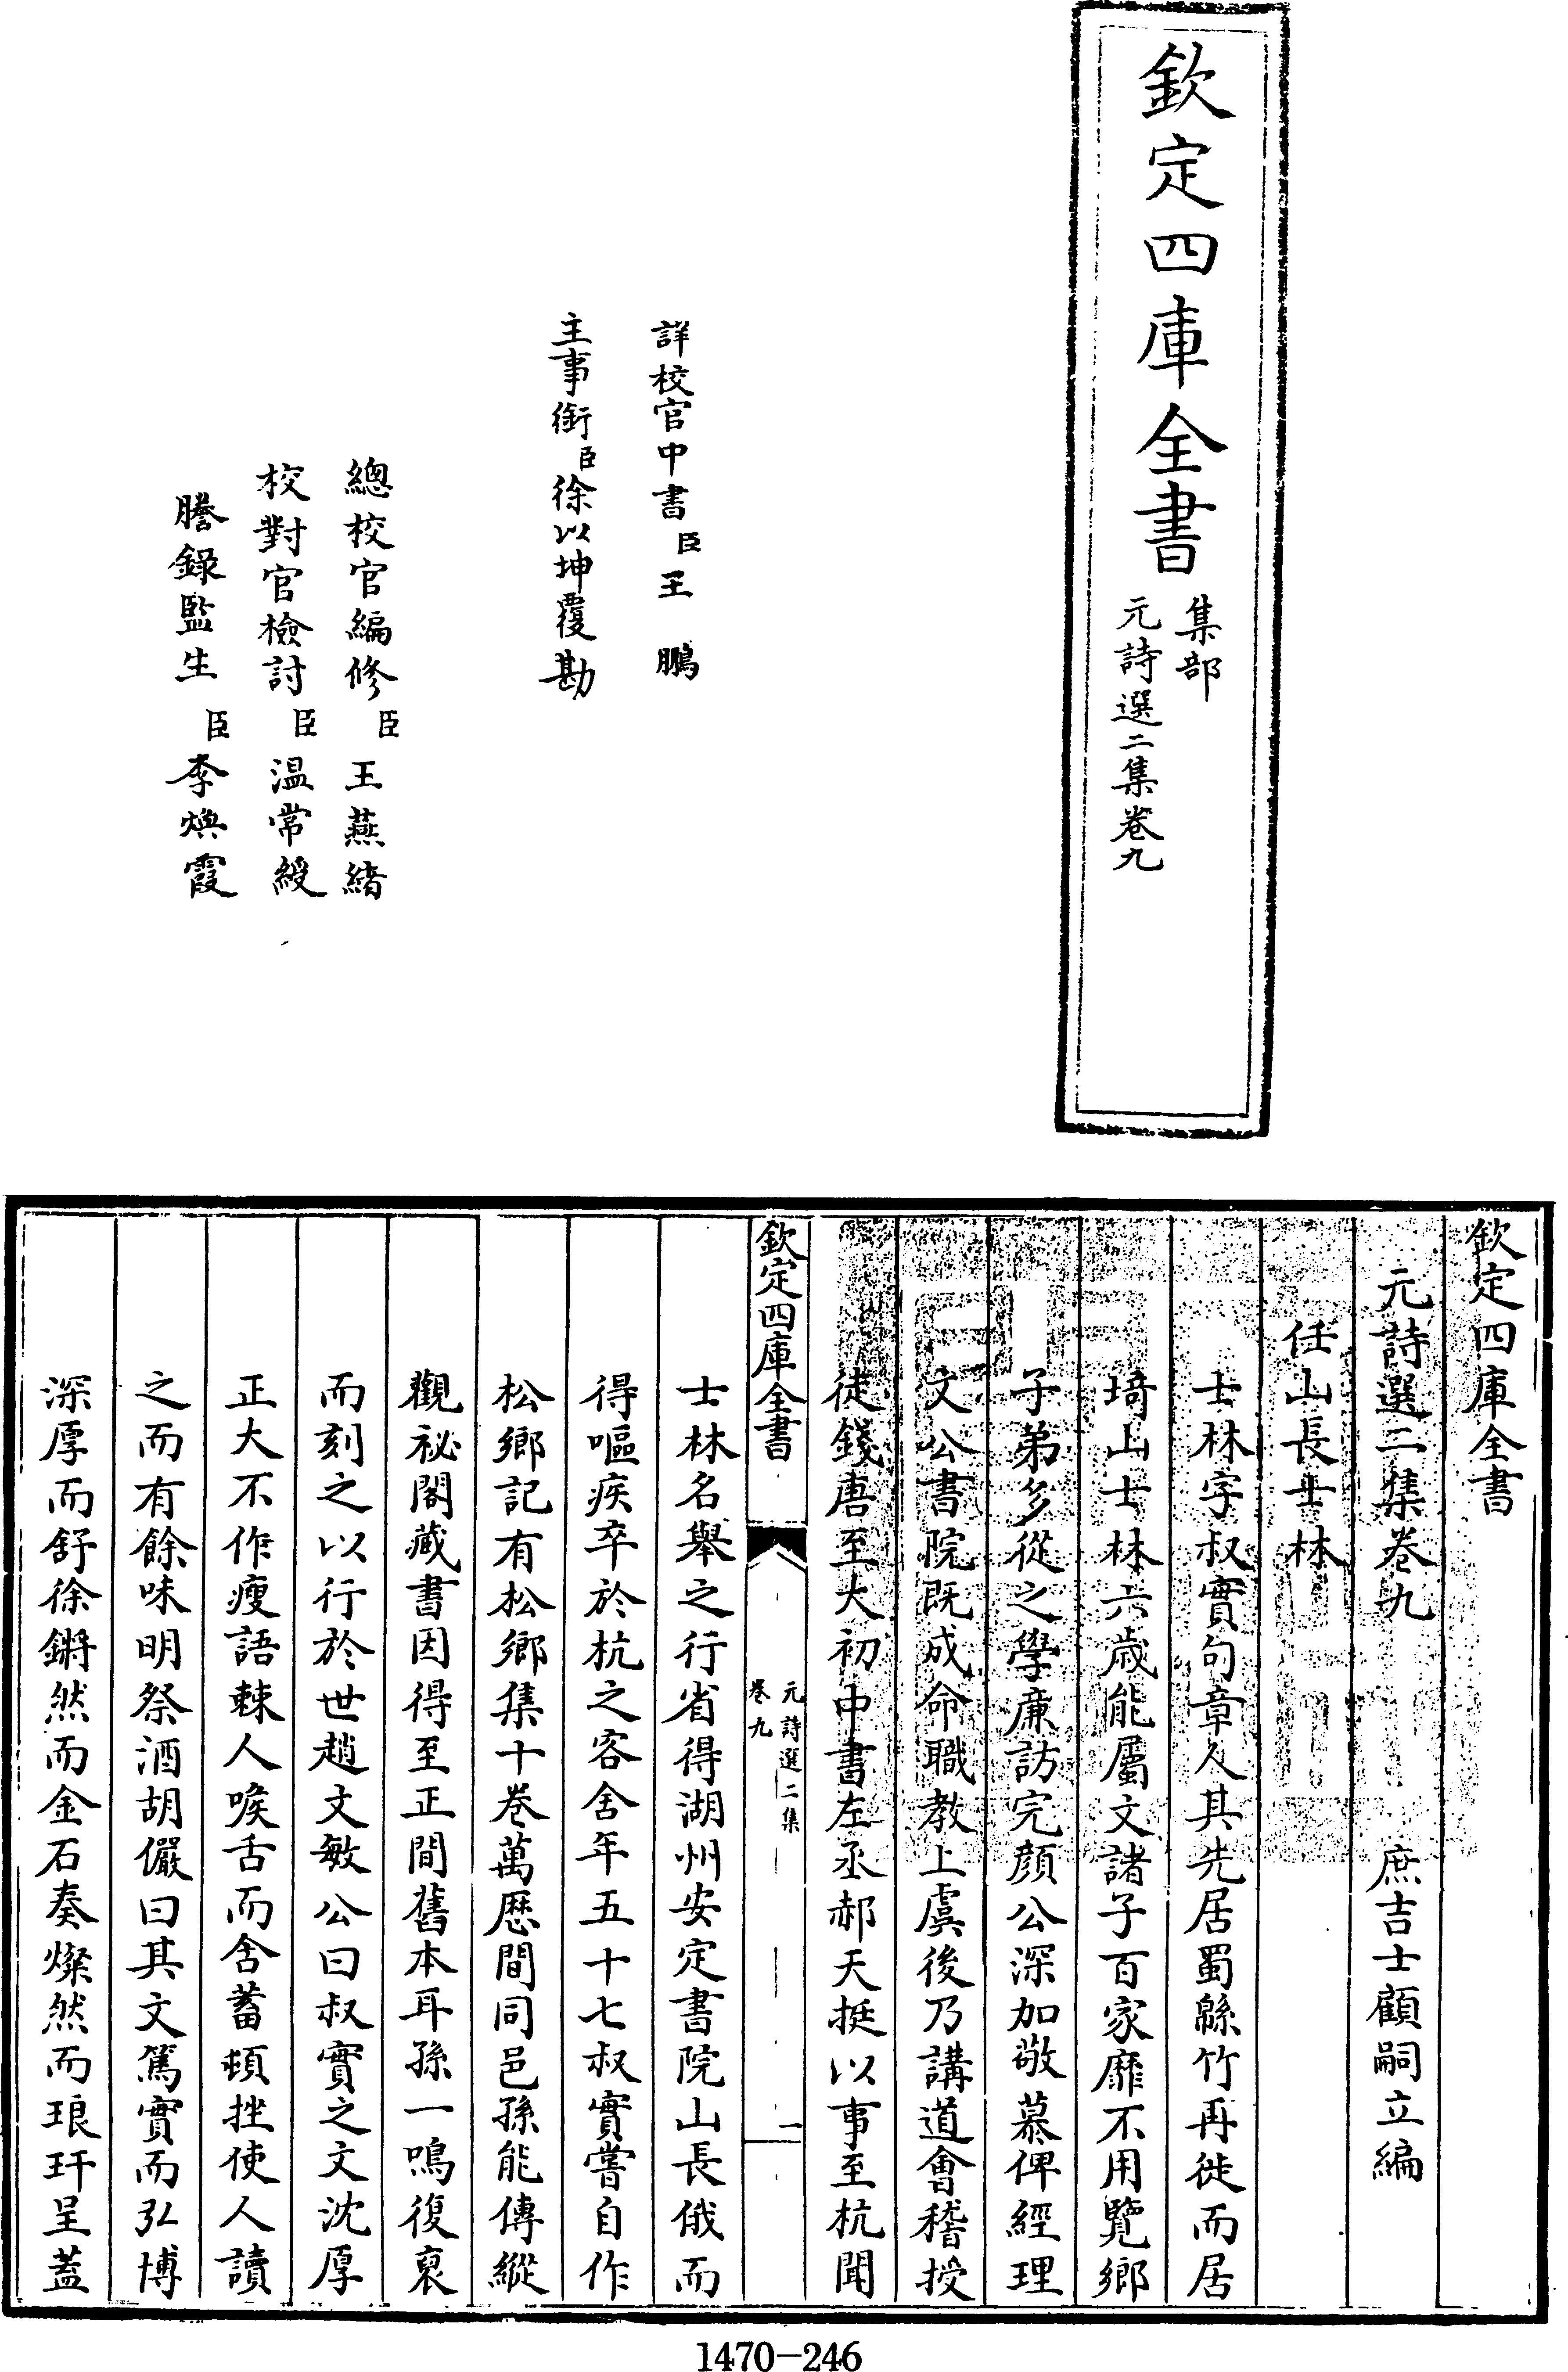 欽定四庫全書
集部
元詩選二集卷九
詳校官中書臣王鵬
主事銜臣徐以坤覆勘
總校官編修臣王燕緒
校對官檢討臣溫常綬
謄錄監生臣李煥霞
欽定四庫全書
元詩選二集卷九
庶吉士顧嗣立編
任山長士林
士林字叔實句章人其先居蜀緜竹再徙而居
埼山士林六歲能屬文諸子百家靡不用覽鄉
子弟多從之學廉訪完顏公深加敬慕俾經理
文公書院既成命職教上虞後乃講道會稽授
徒錢唐至大初中書左丞郝天挺以事至杭聞
欽定四庫全書
元詩選二集
卷九
一
士林名舉之行省得湖州安定書院山長俄而
得嘔疾卒於杭之客舍年五十七叔實嘗自作
松鄉記有松鄉集十卷萬歷間同邑孫能傳縱
觀祕閣藏書因得至正間舊本耳孫一鳴復裒
而刻之以行於世趙文敏公曰叔實之文沈厚
正大不作瘦語棘人喉舌而含蓄頓挫使人讀
之而有餘味明祭酒胡儼曰其文篤實而弘博
深厚而舒徐鏘然而金石奏燦然而琅玕呈蓋
1470-246